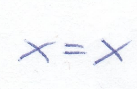 x = x